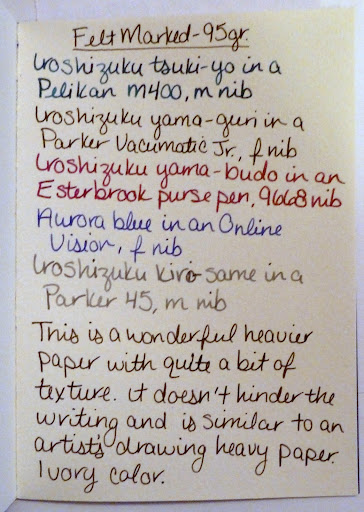 Felt Marked-95gr.
Iroshizuku tsuki-yo in a
Pelikan M400, m nib
Iroshizuku yama-guri in a
Parker Vacumatic Jr., f nib
Iroshizuku yama-budo in an
Esterbrook purse pen, 9668 nib
Aurora blue in an Online
Vision, f nib
Iroshizuku kiri-same in a
Parker 45, m nib
This is a wonderful heavier
paper with quite a bit of
texture. It doesn't hinder the
writing and is similar to an
artist's drawing heavy paper.
Ivory color.